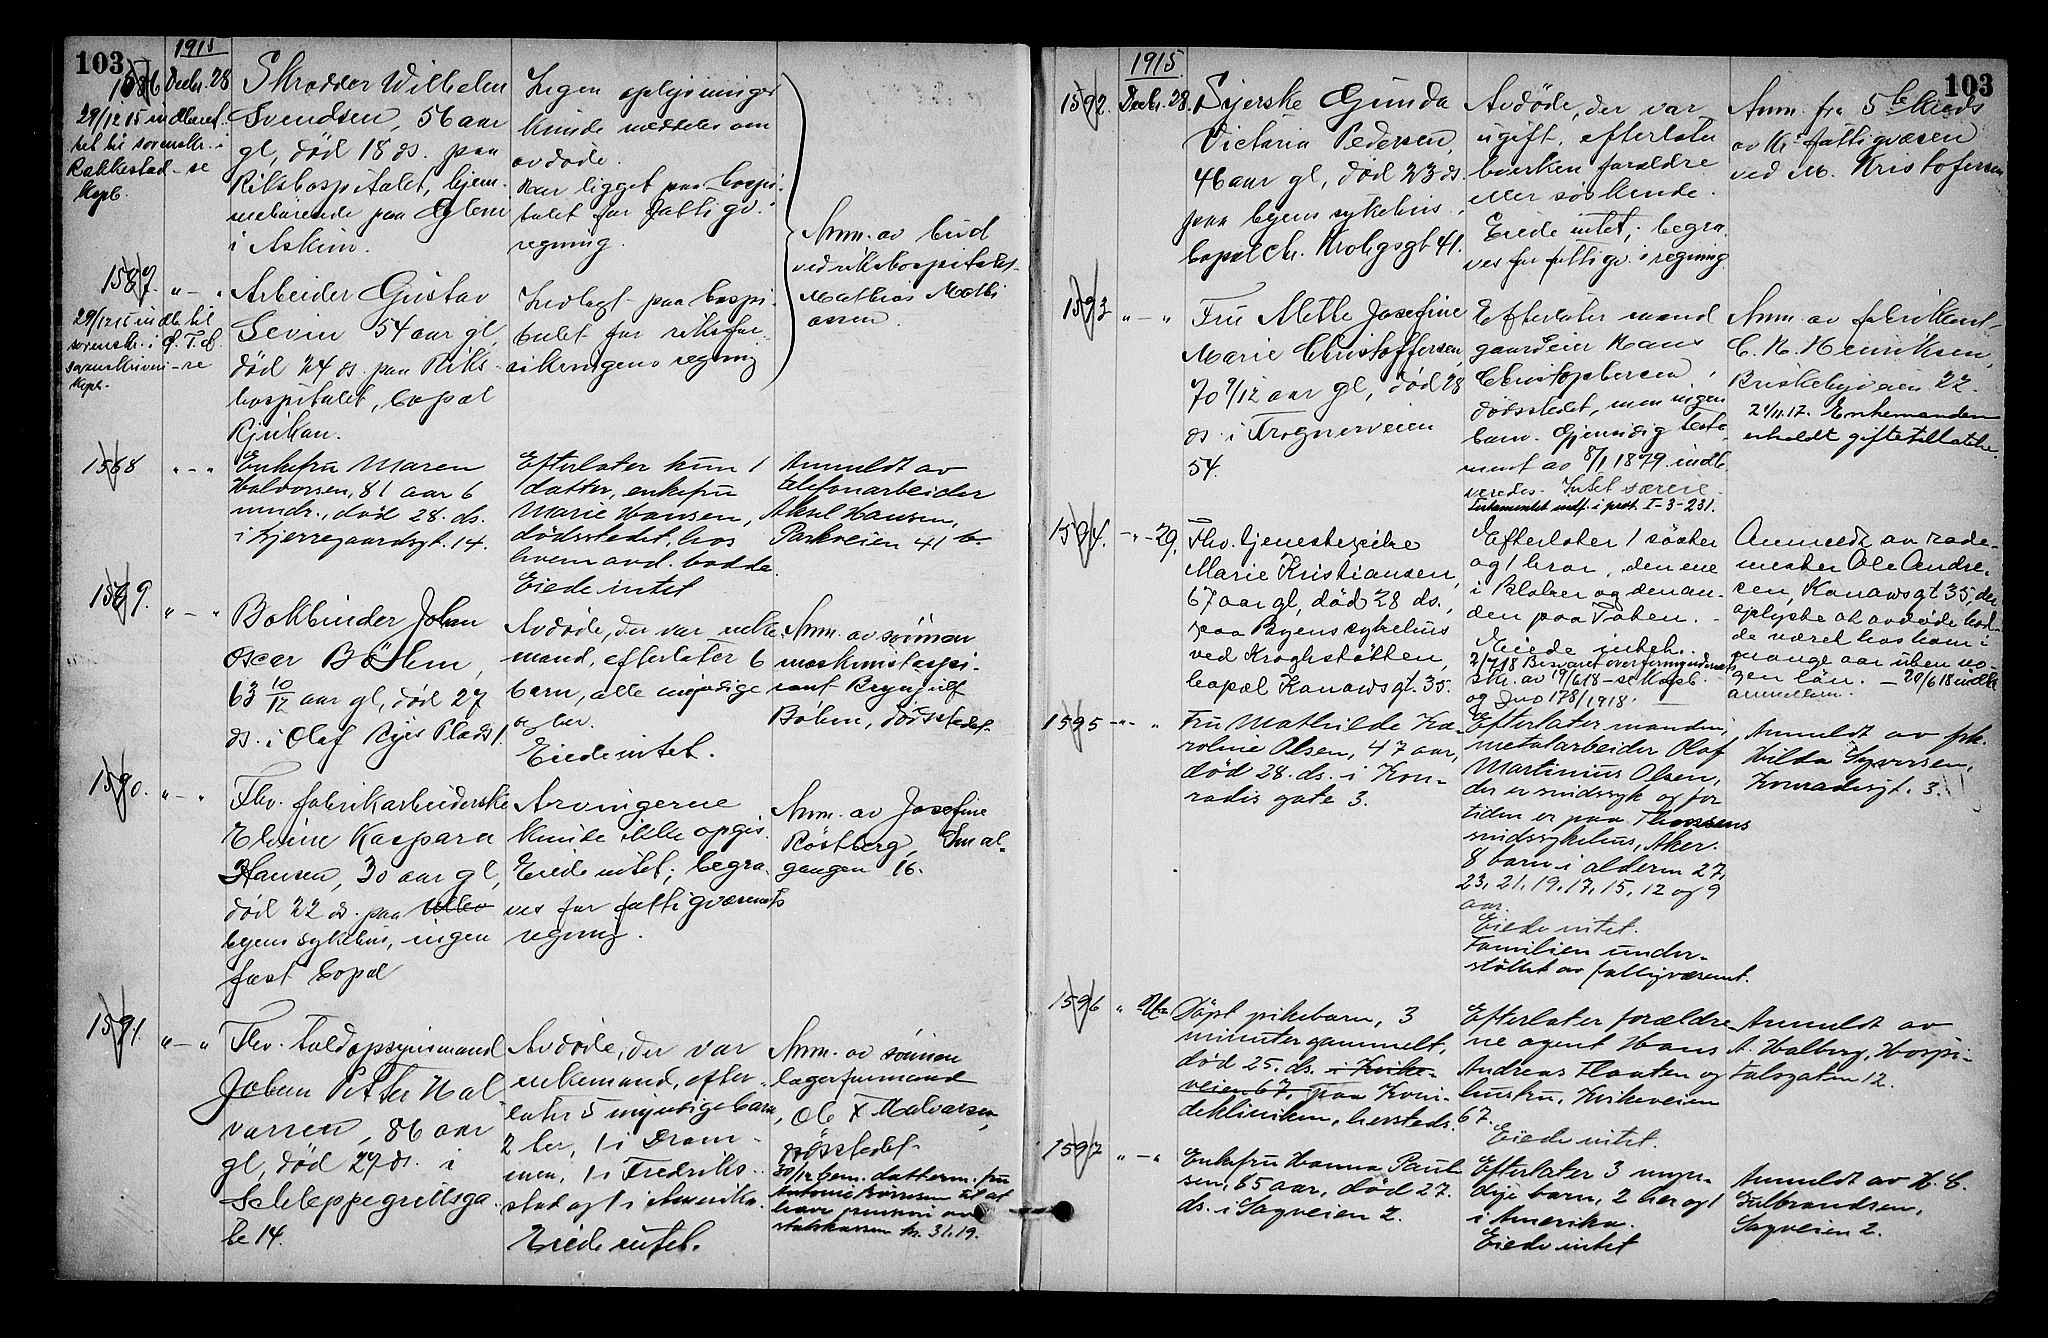 103
1915
1586
Decbr. 28
29/12 15 indberet-
tet til sorenskr. i
Rakkestad - se
Kopb.
Skrædder Wilhelm
Svendsen, 56 aar
gl, död 18 ds. paa
Rikshospitalet, hjem-
mehörende paa
i Askim.
Ingen oplysninger
kunde meddeles om
avdöde.
Har ligget paa hospi-
talet for fattigv.
regning.
Anm. av bud
ved rikshospitalet
Mathias Mathi
assen.
1587.
" - "
29/12 15 indb. til
sorenskr. i
sorenskriveri - se
Kopb.
Arbeider Gustav
Levin 54 aar gl,
död 24 ds. paa Riks-
hospitalet, bopæl
Rjukan.
Indlagt paa hospi-
talet for riksfor-
sikringens regning
1588
" - "
Enkefru Maren
Halvorsen, 81 aar 6
mndr., död 28. ds.
i Kjerregaardsgt. 14.
Efterlater kun 1
datter, enkefru
Marie Hansen,
dödsstedet, hos
hvem avd. bodde.
Eiede intet
Anmeldt av
telefonarbeider
Aksel Hansen,
Parkveien 41 b.
1589.
" - "
Bokbinder Johan
Oscar Böhm,
63 10/12 aar gl, död 27
ds. i Olaf Ryes Plads 1.
Avdöde, der var enke-
mand, efterlater 6
barn, alle myndige
og her.
Eiede intet.
Anm. av sönnen
maskinistaspi-
rant Brynjulf
Böhm, dödsstedet.
1590.
" - "
Fhv. fabrikarbeiderske
Elvine Kaspara
Hansen, 30 aar gl,
död 22 ds. paa Ullev
byens sykehus, ingen
fast bopæl
Arvingerne
kunde ikke opgis.
Eiede intet; begra-
ves for fattigvæsenets
regning.
Anm. av Josefine
Röstberg, Smal-
gangen 16.
1591.
" - "
Fhv. toldopsynsmand
Johan Petter Hal
vorsen, 86 aar
gl, död 27 ds. i
Schleppegrellsga-
te 14.
Avdöde, der var
enkemand, efter-
later 5 myndige barn,
2 her, 1 i Dram-
men, 1 i Fredriks-
stad og 1 i Amerika.
Eiede intet.
Anm. av sönnen
lagerformand
Ole Halvorsen,
dödsstedet
30/12 bem. datteren, fru
Antonie
have pension av
statskassen kr. 31.19.
103
1915.
1592.
Decbr. 28.
Syerske Gunda
Victoria Pedersen,
46 aar gl, död 23 ds.
paa byens sykehus,
bopæl Chr. Krohgsgt 41.
Avdöde, der var
ugift, efterlater
hverken forældre
eller söskende.
Eiede intet; begra-
ves for fattigv. regning.
Anm. fra 5te kreds
av Kr. fattigvæsen
ved M. Kristofersen
1593
" - "
Fru Mette Josefine
Marie Christoffersen,
70 9/12 aar gl, död 28
ds. i Frognerveien
54.
Efterlater mand
gaardeier Hans
Christophersen,
dödsstedet, men ingen
barn. Gjensidig testa-
ment av 8/1 1879 indle-
veredes. Intet særeie.
Testamentet indf. i prot. I-3-231.
Anm. av fabrikant
C. H. Henriksen,
Briskebyveien 22.
21/11.17. Enkemanden
erholdt giftetillatelse.
1594.
" - 29.
Fhv. tjenestepike
Marie Kristiansen,
67 aar gl, död 28 ds.,
paa Byens sykehus
ved Kroghstötten,
bopæl Kanawsgt. 35.
Efterlater 1 söster
og 1 bror, den ene
i Blaker og den an-
den paa Toten.
Eiede intet.
2/7 18 Besvaret overformynderiets
skr. av 19/6 18 - se Kopb.
og Jno 178/1918.
Anmeldt av rode-
mester Ole Andre-
sen, Kanawsgt 35, der
oplyste at avdöde had-
de været hos ham i
mange aar uten no-
gen lön. - 20/6 18 indk
anmelderen.
1595
" - "
Fru Mathilde Ka-
roline Olsen, 47 aar,
död 28. ds. i Kon-
radis gate 3.
Efterlater manden,
metalarbeider Olaf
Martinius Olsen,
der er sindssyk og for
tiden er paa Thorsens
sindssykehus, Aker.
8 barn i alderen 27,
23, 21, 19, 17, 15, 12 og 9
aar.
Eiede intet.
Familien under-
stöttet av fattigvæsenet.
Anmeldt av frk.
Hilda Syversen,
Konradisgt. 3.
1596
Döpt pikebarn, 3
minuter gammelt,
död 25. ds. i Kirke-
veien 67, paa Kvin-
deklinikken, hersteds.
Efterlater forældre-
ne agent Hans
Andreas Flaaten og
hustru, Kirkeveien
67.
Eiede intet.
Anmeldt av
A. Halberg, Hospi-
talsgaten 12.
1597
" - "
Enkefru Hanna Paul-
sen, 65 aar, död 27.
ds. i Sagveien 2.
Efterlater 3 myn-
dige barn, 2 her og 1
i Amerika.
Eiede intet
Anmeldt av H. C.
Gulbrandsen,
Sagveien 2.